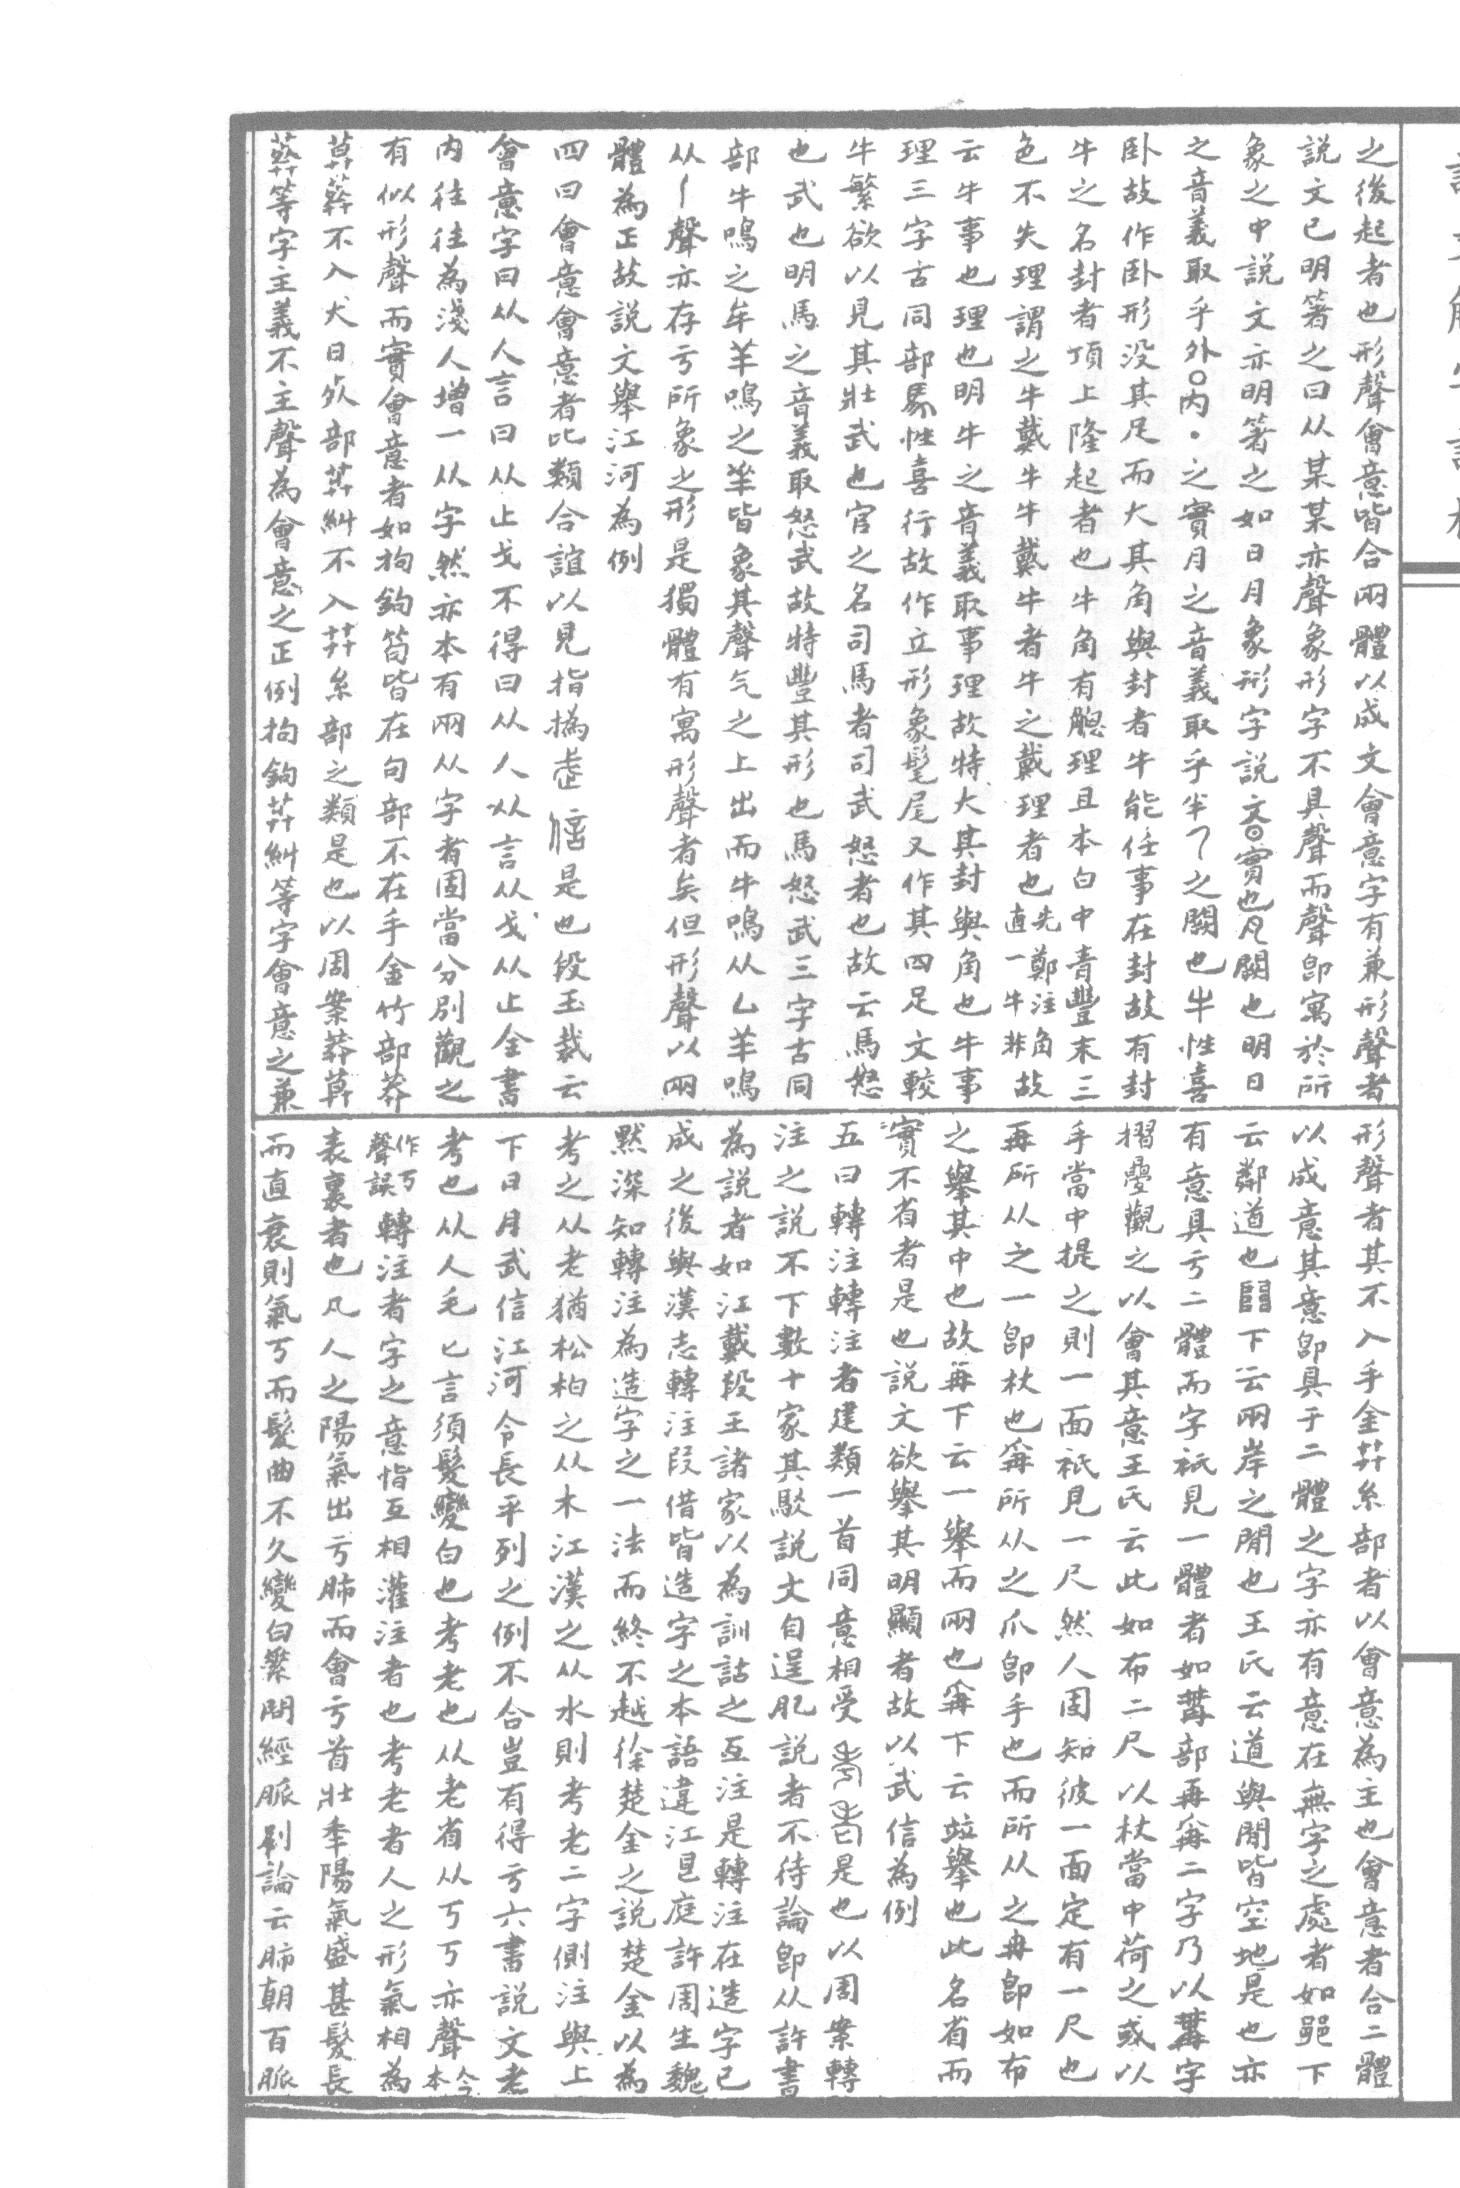 之後起者也形聲會意皆合兩體以成文會意字有兼形聲者
説文已明箸之曰从某某亦聲象形字不具聲而聲卽寓於所
象之中説文亦明箸之如日月象形字説文○實也凡闕也明日
之音義取乎外○内・之實月之音義取乎半之闕也牛性喜
卧故作卧形没其足而大其角與封者牛能任事在封故有封
牛之名封者頂上隆起者也牛角有䚡理且本白中青豐末三
色不失理謂之牛戴牛牛戴牛者牛之戴理者也先鄭注角直一牛非故
云牛事也理也明牛之音義取事理故特大其封與角也牛事
理三字古同部馬性喜行故作立形象髦尾又作其四足文較
牛繁欲以見其壯武也官之名司馬者司武怒者也故云馬怒
也武也明馬之音義取怒武故特豐其形也馬怒武三字古同
部牛鳴之牟羊鳴之芈皆象其聲气之上出而牛鳴从厶羊鳴
从丨聲亦存亏所象之形是獨體有寓形聲者矣但形聲以兩
體為正故説文舉江河為例
四曰會意會意者比類合誼以見指撝武信是也段玉裁云
會意字曰从人言曰从止戈不得曰从人从言从戈从止金書
内往往為淺人增一从字然亦本有兩从字者固當分別觀之
有似形聲而實會意者如拘鉤笱皆在句部不在手金竹部莽
莫葬不入犬日死部茻糾不入艸糸部之類是也以周案莽莫
葬等字主義不主聲為會意之正例拘鉤茻糾等字會意之兼
形聲者其不入手金艸糸部者以會意為主也會意者合二體
以成意其意卽具于二體之字亦有意在無字之處者如𨛜下
云鄰道也𨺅下云兩岸之閒也王氏云道與閒皆空地是也亦
有意具亏二體而字衹見一體者如冓部再爯二字乃以冓字
摺疊觀之以會其意王氏云此如布二尺以杖當中荷之或以
手當中提之則一面衹見一尺然人固知彼一面定有一尺也
再所从之一卽杖也爯所从之爪卽手也而所从之冉卽如布
之舉其中也故再下云一舉而兩也爯下云竝舉也此名省而
實不省者是也説文欲舉其明顯者故以武信為例
五曰轉注轉注者建類一首同意相受考老是也以周案轉
注之説不下數十家其駁説文自逞肊説者不待論卽从許書
為説者如江戴段王諸家以為訓詁之互注是轉注在造字已
成之後與漢志轉注叚借皆造字之本語違江艮庭許周生魏
默深知轉注為造字之一法而終不越徐楚金之説楚金以為
考之从老猶松柏之从木江漢之从水則考老二字側注與上
下日月武信江河令長平列之例不合豈有得亏六書説文老
考也从人毛匕言須髮變白也考老也从老省从丂丂亦聲今本
作丂聲誤轉注者字之意恉互相灌注者也考老者人之形氣相為
表裏者也凡人之陽氣出亏肺而會亏首壯季陽氣盛甚髮長
而直衰則氣丂而髮曲不久變白素問經脈別論云肺朝百脈